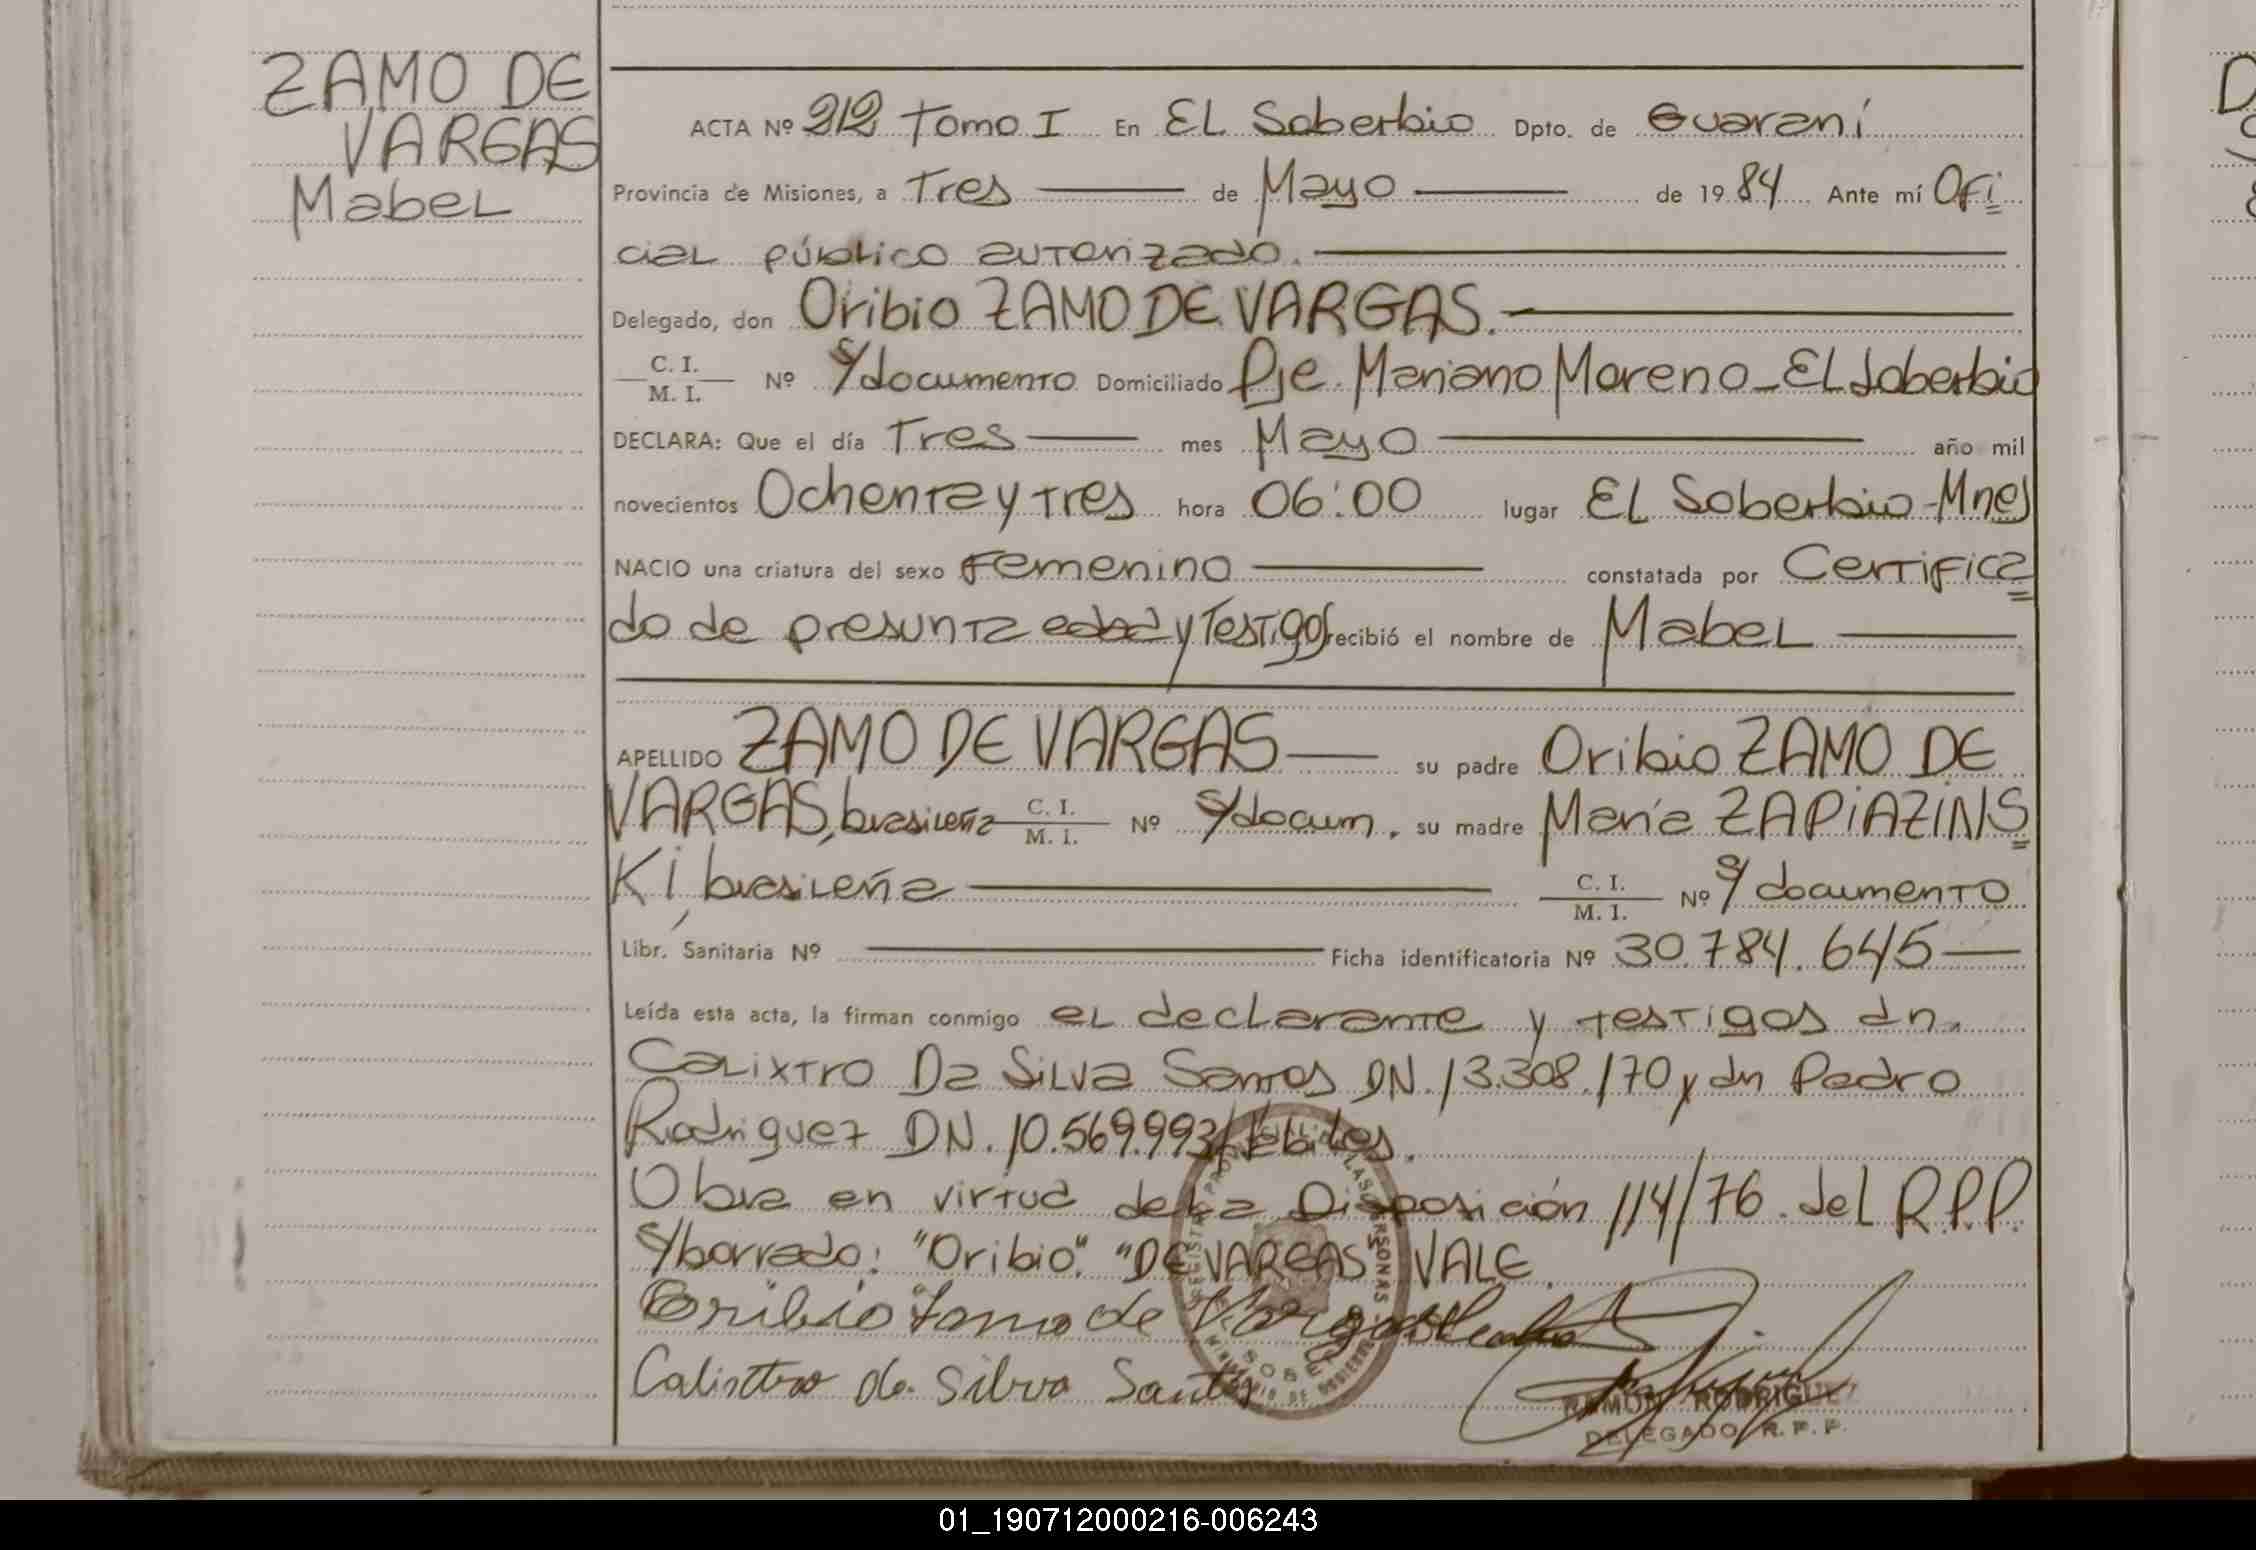 ZAMO DE
VARGAS
Mabel
ACTA Nº 212 Tomo I En El Soberbio Dpto. de Guaraní
Provincia de Misiones, a Tres de Mayo de 1984 Ante mí Ofi
cial público autorizado.
Delegado, don Oribio ZAMO DE VARGAS.
C. I.
M. I. Nº s/documento Domiciliado Pje. Mariano Moreno - El Soberbio
DECLARA: Que el día Tres mes Mayo año mil
novecientos Ochenta y tres hora 06:00 lugar El Soberbio - Mnes
NACIO una criatura del sexo Femenino constatada por Certifica
do de presunta edad y Testigos recibió el nombre de Mabel
APELLIDO ZAMO DE VARGAS su padre Oribio ZAMO DE
VARGAS, brasileña C. I. M. I. Nº s/docum. su madre María ZAPIAZINS
Ki, brasileña C. I. M. I. Nº s/documento
Libr. Sanitaria Nº Ficha identificatoria Nº 30.784.645
Leída esta acta, la firman conmigo el declarante y testigos dn.
Calixtro Da Silva Santos DN. 13.308.170 y dn Pedro
Rodriguez DN. 10.569.993/ hábiles.
Obra en virtud de la Disposición 114/76 del R.P.P.
s/borrado: "Oribio". "DE VARGAS" VALE.
Oribio Zamo de Vargas
Calisttro da Silva Santos
RAMON RODRIGUEZ
DELEGADO R. P. P.
01_190712000216-006243